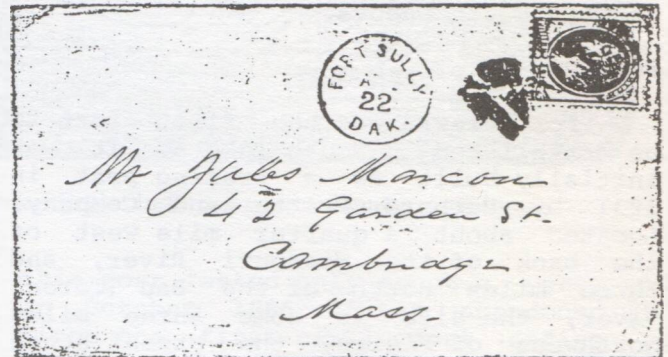 FORT SULLY
A
22
DAK.
Mr Jules Marcou
42 Garden St.
Cambridge
Mass.